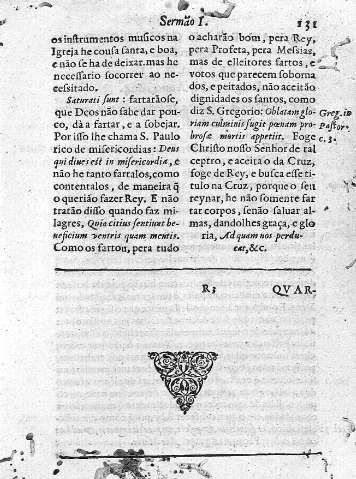 Sermão I.
131
os instrumentos musicos na
Igreja he cousa santa, e boa,
e não se ha de deixar. mas he
necessario socorrer ao ne-
cessitado.
Saturati sunt: fartarãose,
que Deos não sabe dar pou-
co, dà a fartar, e a sobejar.
Por isso lhe chama S. Paulo
rico de misericordias: Deus
qui dives est in misericordia, e
não he tanto fartalos, como
contentalos, de maneira q̃
o querião fazer Rey. E não
tratão disso quando faz mi-
lagres, Quia citius sentiunt be-
neficium ventris quam mentis.
Como os fartou, pera tudo
o acharão bom, pera Rey,
pera Profeta, pera Messias,
mas de elleitores fartos, e
votos que parecem soborna
dos, e peitados, não aceitão
dignidades os santos, como
diz S. Gregorio: Oblatam glo-
riam culminis fugit pœnam pro-
brosæ mortis appetit. Foge
Christo nosso Senhor de tal
ceptro, e aceita o da Cruz,
foge de Rey, e busca esse ti-
tulo na Cruz, porque o seu
reynar, he não somente far
tar corpos, senão saluar al-
mas, dandolhes graça, e glo
ria, Ad quam nos perdu-
cat, &c.
Greg. in
Pastor.
c. 3.
R3
QVAR-